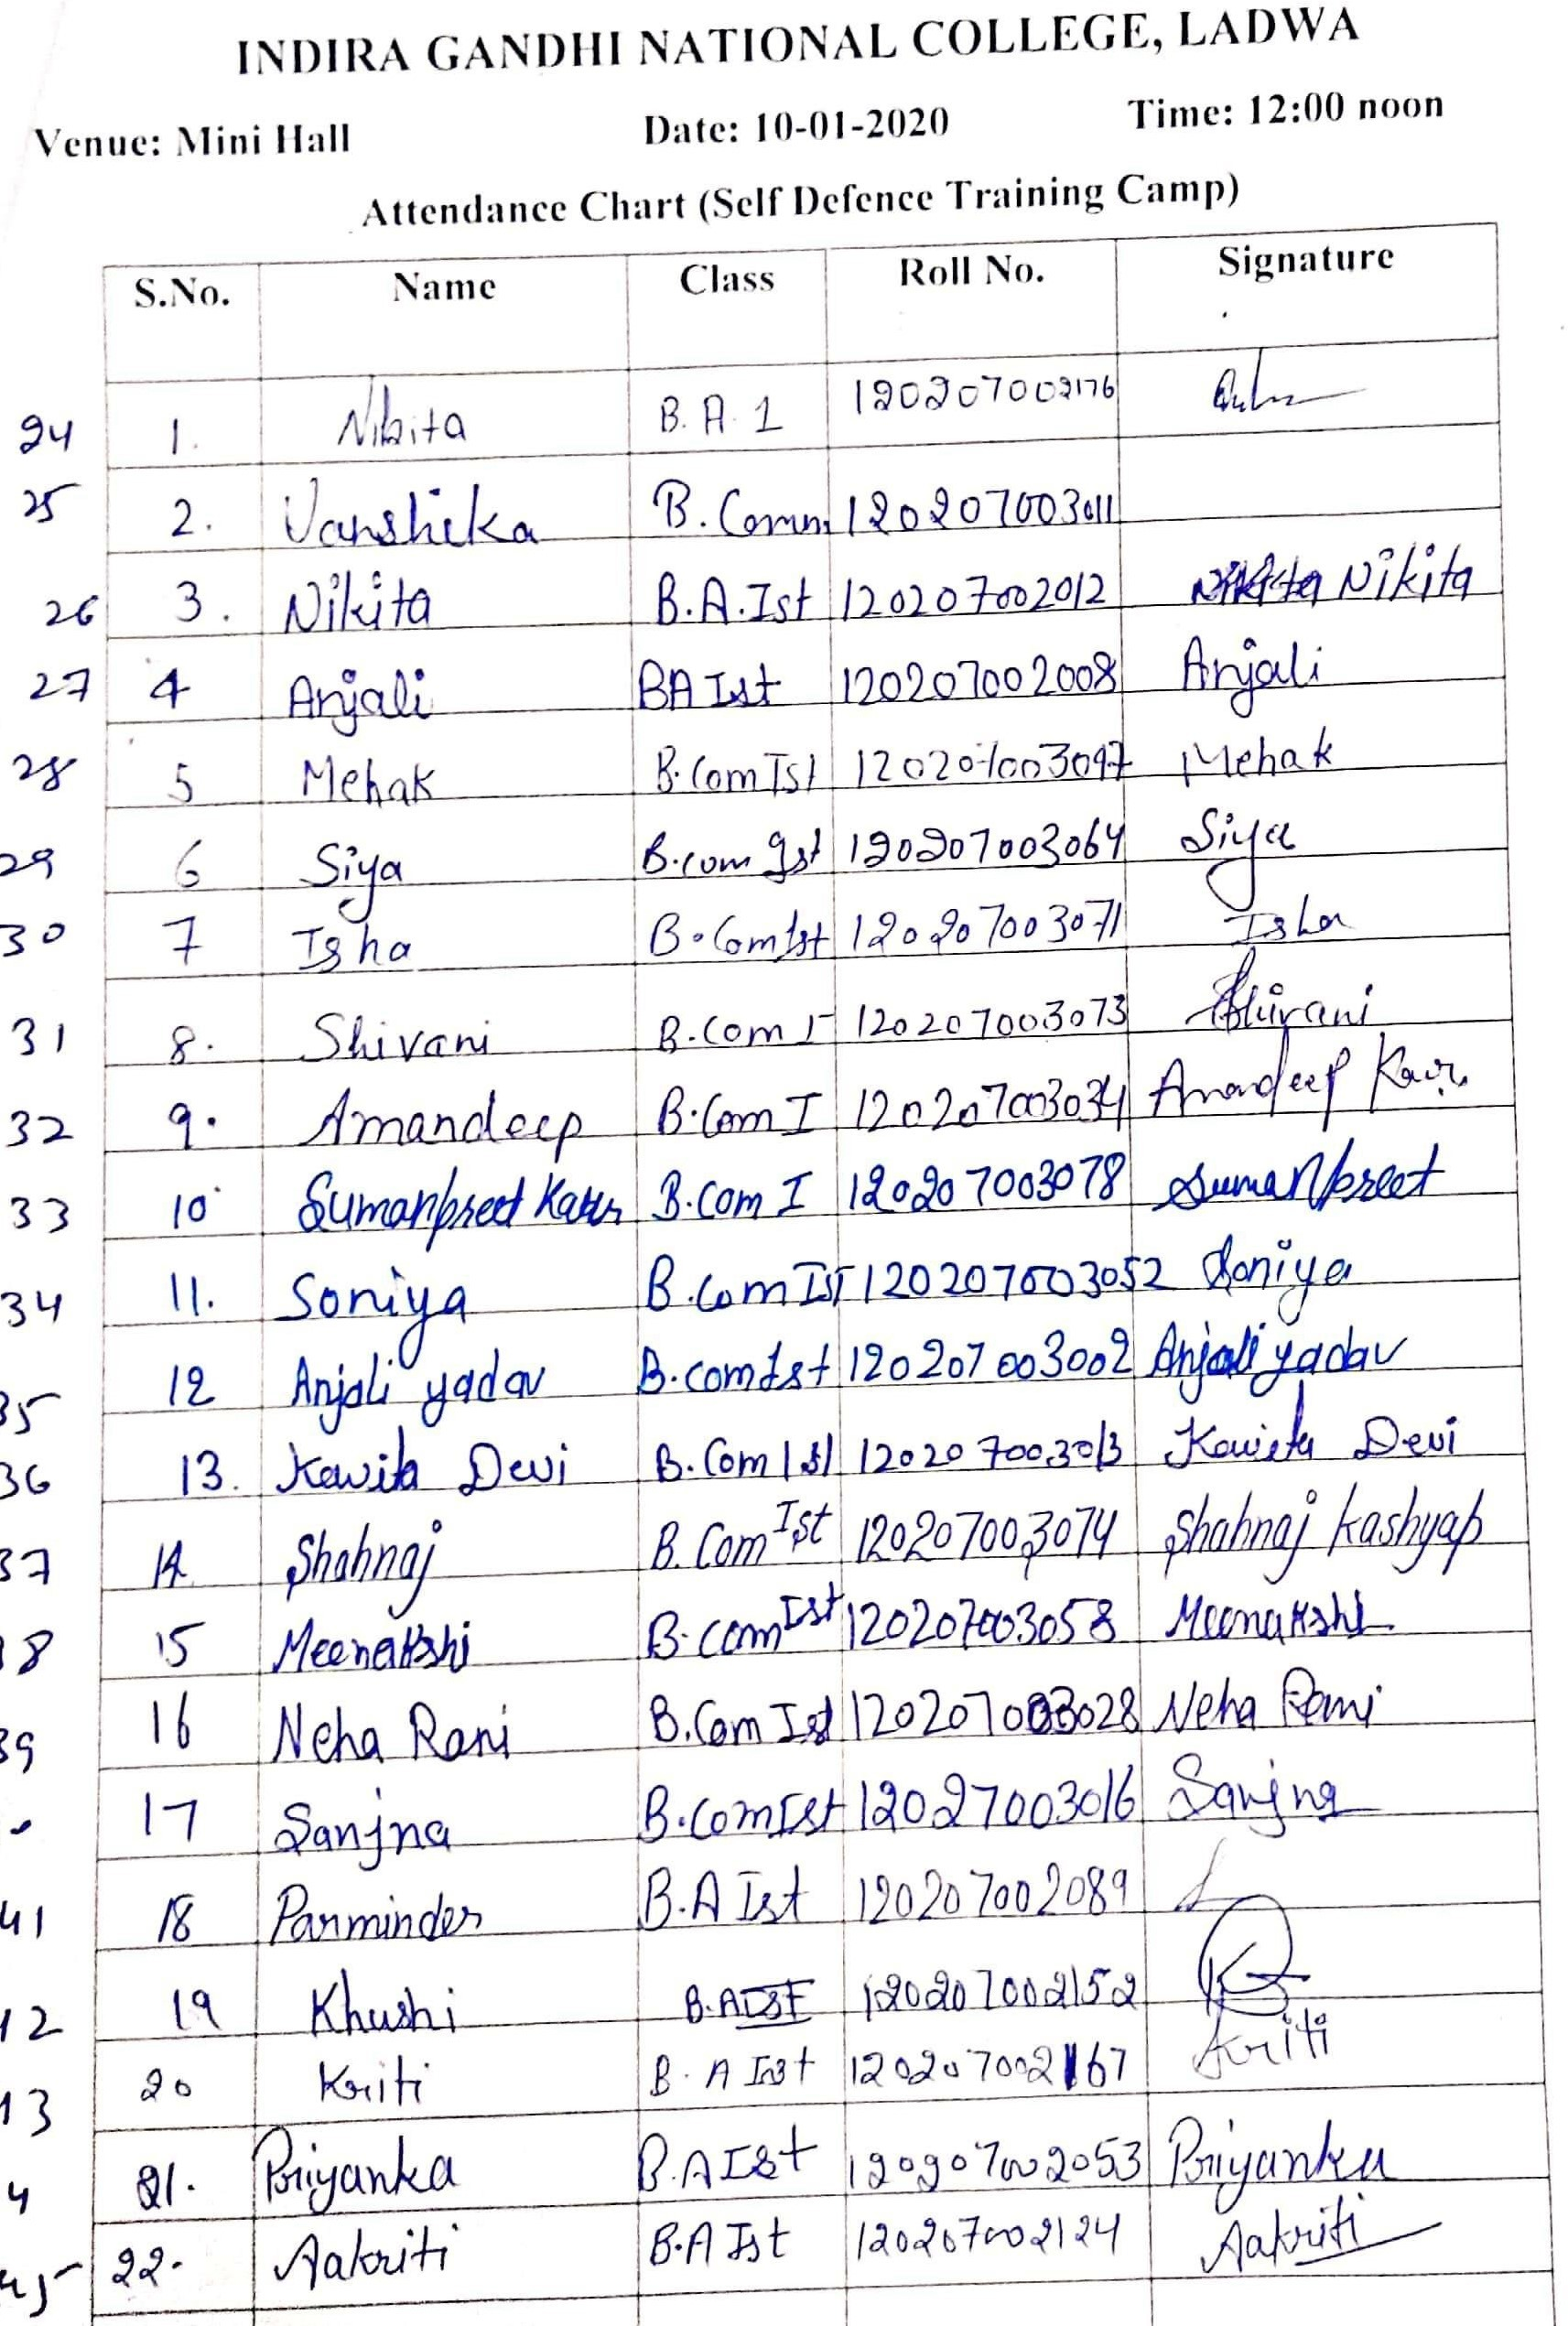 INDIRA GANDHI NATIONAL COLLEGE, LADWA
Venue: Mini Hall Date: 10-01-2020 Time: 12:00 noon
Attendance Chart (Self Defence Training Camp)
S.No. Name Class Roll No. Signature
24 1. Nikita B.A.1 120207002176
25 2. Vanshika B.Comm. 120207003011
26 3. Nikita B.A.Ist 120207002012 Nikita Nikita
27 4 Anjali BA Ist 120207002008 Anjali
28 5 Mehak B.Com Ist 120207003097 Mehak
29 6 Siya B.com Ist 120207003064 Siya
30 7 Isha B.Com Ist 120207003071 Isha
31 8. Shivani B.Com I 120207003073 Shivani
32 9. Amandeep B.Com I 120207003034 Amandeep Kaur
33 10 Sumanpreet Kaur B.Com I 120207003078 Sumanpreet
34 11. Soniya B.Com Ist 120207003052 Soniya
35 12 Anjali yadav B.com Ist 120207003002 Anjali yadav
36 13. Kawita Devi B.Com Ist 120207003013 Kawita Devi
37 14 Shahnaj B.Com Ist 120207003074 Shahnaj Kashyap
38 15 Meenakshi B.com Ist 120207003058 Meenakshi
39 16 Neha Rani B.Com Ist 120207003028 Neha Rani
17 Sanjna B.Com Ist 12027003016 Sanjna
41 18 Parminder B.A Ist 120207002089
12 19 Khushi B.A Ist 120207002152
13 20 Kriti B.A Ist 120207002167 Kriti
4 21. Priyanka B.A Ist 120207002053 Priyanka
45 22. Aakriti B.A Ist 120207002124 Aakriti